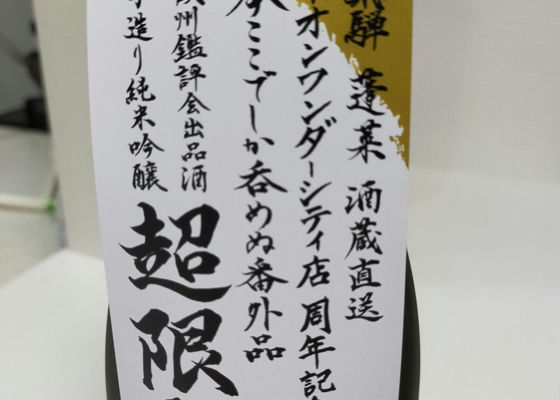 飛騨 蓬莱 酒蔵直送
オンワンダーシティ店 周年記
ここでしか呑めぬ番外品
欧州鑑評会出品酒
造り純米吟醸
超限